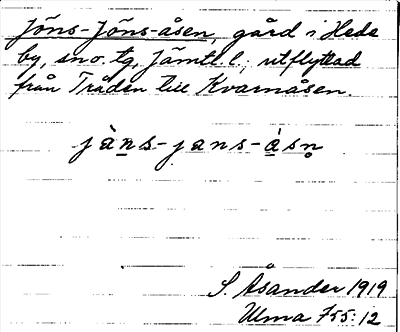 Jöns-Jöns-åsen, gård i Hede
by, sno. tg, Jämtl. l.; utflyttad
från Tråden till Kvarnåsen.
jàns-jans-àsn̥
S. Åsander 1919
Ulma 755:12